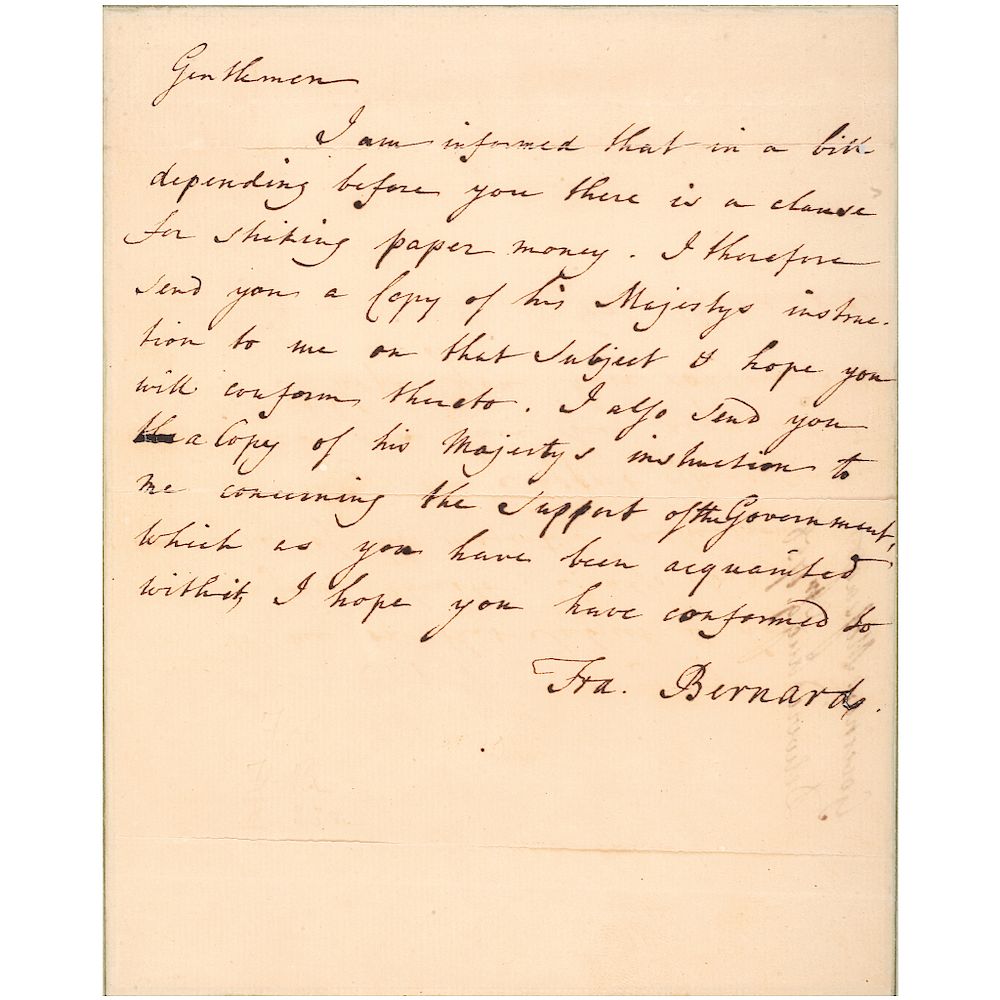 Gentlemen
I am informed that in a bill
depending before you there is a clause
for striking paper money. I therefore
send you a Copy of his Majestys instruc-
tion to me on that Subject & hope you
will conform thereto. I also send you
a Copy of his Majestys instruction to
me concerning the Support of the Government,
which as you have been acquainted
with it, I hope you have conformed to
Fra. Bernard.